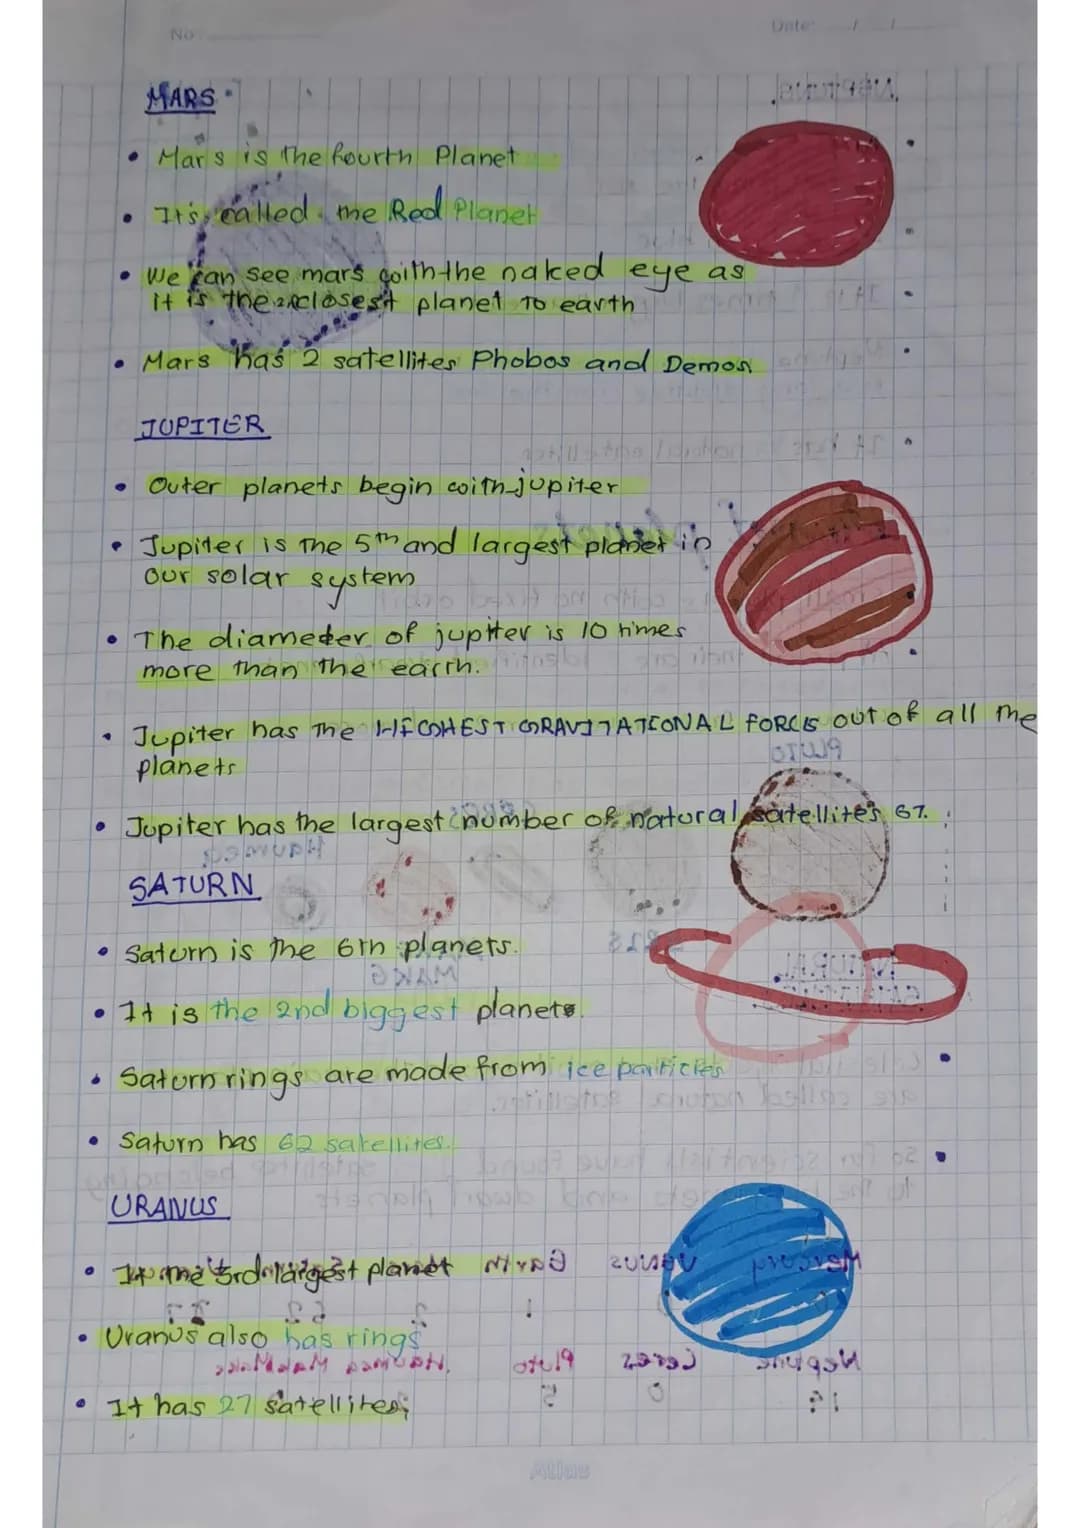 No
Date: / /
MARS
• Mars is the fourth Planet
• It's called the Red Planet
• We can see mars with the naked eye as
it is the 2nd closest planet to earth
• Mars has 2 satellites Phobos and Demos
JUPITER
• Outer planets begin with jupiter
• Jupiter is the 5th and largest planet in
our solar system
• The diameter of jupiter is 10 times
more than the earth.
• Jupiter has the HIGHEST GRAVITATIONAL FORCE out of all the
planets
• Jupiter has the largest number of natural satellites 67.
SATURN
• Saturn is the 6th planets.
• It is the 2nd biggest planet.
• Saturn rings are made from ice particles
• Saturn has 62 satellites.
URANUS
• It the 3rd largest planet
• Uranus also has rings
• It has 27 satellites
Atlas